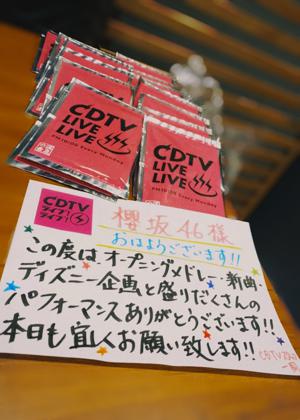 CDTV
LIVE
LIVE
PM10:00 Every Monday
CDTV
LIVE
LIVE
Every Monday
CDTV
ライブ!
ライブ!
櫻坂46様
おはようございます!!
この度はオープニングメドレー・新曲・
ディズニー企画と盛りだくさんの
パフォーマンスありがとうございます!!
本日も宜しくお願い致します!!